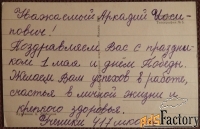 Уважаемый Аркадий Иоси-
пович!
Поздравляем Вас с праздни-
ком 1 мая и днём Победы.
Желаем Вам успехов в работе,
счастья в личной жизни и
крепкого здоровья.
417 школы
ddsFactory